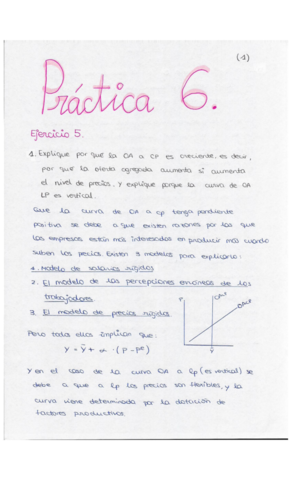 (1)
Práctica 6.
Ejercicio 5.
1. Explique por qué la OA a CP es creciente, es decir,
por qué la oferta agregada aumenta si aumenta
el nivel de precios, y explique porque la curva de OA
LP es vertical.
Que la curva de OA a cp tenga pendiente
positiva se debe a que existen razones por las que
las empresas están más interesadas en producir más cuando
suben los precios. Existen 3 modelos para explicarlo:
1. Modelo de salarios rígidos
2. El modelo de las percepciones erróneas de los
trabajadores
3. El modelo de precios rígidos
P
OALP
OACP
Pero todos ellos implican que:
Y = Ȳ + α · (P - Pe)
Ȳ
Y en el caso de la curva OA a lp (es vertical) se
debe a que a lp los precios son flexibles, y la
curva viene determinada por la dotación de
factores productivos